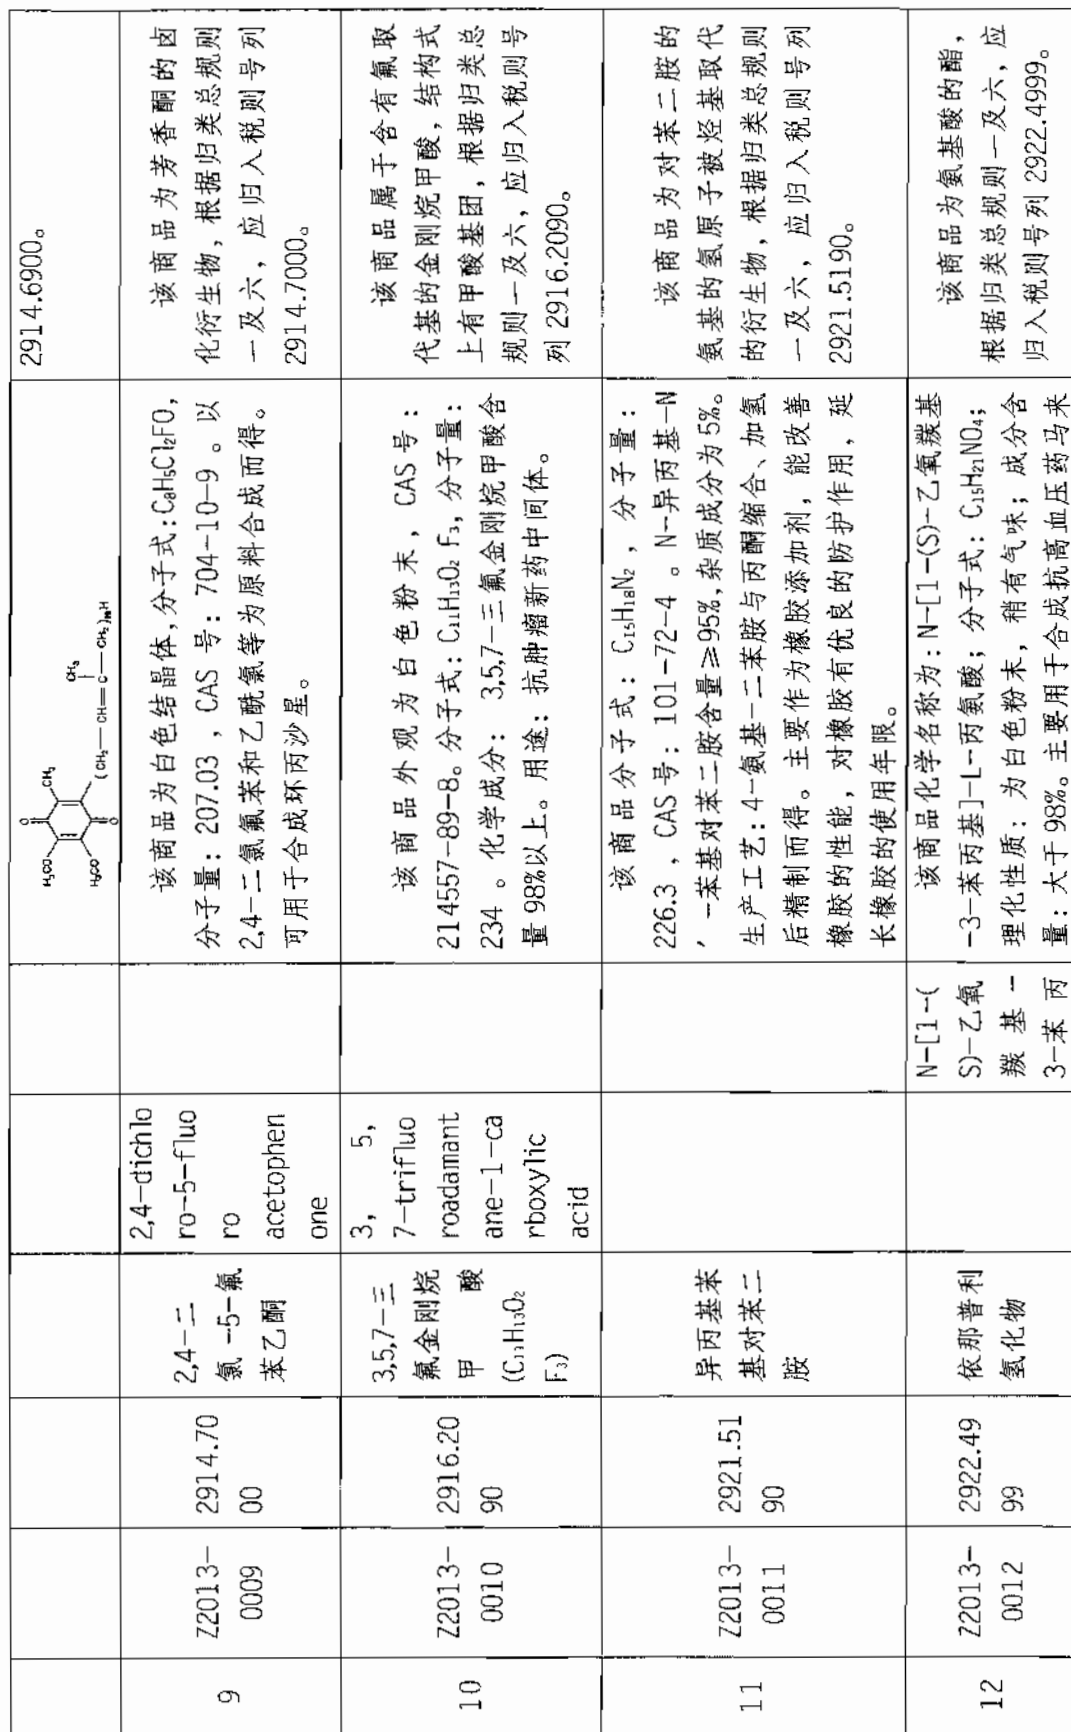 H₃CO
H₃CO
O
O
CH₃
CH₃
(CH₂—CH=C—CH₂)₁₀H
2914.6900。
9
Z2013-
0009
2914.70
00
2,4-二
氯-5-氟
苯乙酮
2,4-dichlo
ro-5-fluo
ro
acetophen
one
该商品为白色结晶体,分子式:C₈H₅Cl₂FO,
分子量: 207.03 , CAS 号: 704-10-9 。以
2,4-二氯氟苯和乙酰氯等为原料合成而得。
可用于合成环丙沙星。
该商品为芳香酮的卤
化衍生物, 根据归类总规则
一及六, 应归入税则号列
2914.7000。
10
Z2013-
0010
2916.20
90
3,5,7-三
氟金刚烷
甲 酸
(C₁₁H₁₃O₂
F₃)
3, 5,
7-trifluo
roadamant
ane-1-ca
rboxylic
acid
该商品外观为白色粉末, CAS 号:
214557-89-8。分子式: C₁₁H₁₃O₂ F₃, 分子量:
234 。化学成分: 3,5,7-三氟金刚烷甲酸含
量 98%以上。用途: 抗肿瘤新药中间体。
该商品属于含有氟取
代基的金刚烷甲酸, 结构式
上有甲酸基团, 根据归类总
规则一及六, 应归入税则号
列 2916.2090。
11
Z2013-
0011
2921.51
90
异丙基苯
基对苯二
胺
该商品分子式: C₁₅H₁₈N₂ , 分子量:
226.3 , CAS 号: 101-72-4 。N-异丙基-N
′ -苯基对苯二胺含量≥95%,杂质成分为 5%。
生产工艺: 4-氨基-二苯胺与丙酮缩合、加氢
后精制而得。主要作为橡胶添加剂, 能改善
橡胶的性能, 对橡胶有优良的防护作用, 延
长橡胶的使用年限。
该商品为对苯二胺的
氨基的氢原子被烃基取代
的衍生物, 根据归类总规则
一及六, 应归入税则号列
2921.5190。
12
Z2013-
0012
2922.49
99
依那普利
氢化物
N-[1-(
S)-乙氧
羰基-
3-苯丙
该商品化学名称为: N-[1-(S)-乙氧羰基
-3-苯丙基]-L-丙氨酸; 分子式: C₁₅H₂₁NO₄;
理化性质: 为白色粉末, 稍有气味; 成分含
量: 大于 98%。主要用于合成抗高血压药马来
该商品为氨基酸的酯,
根据归类总规则一及六, 应
归入税则号列 2922.4999。